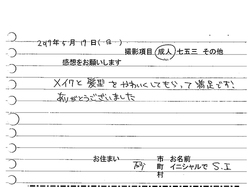 2019年5月19日(日)
撮影項目 成人 七五三 その他
感想をお願いします
メイクと髪型をかわいくしてもらって満足です!
ありがとうございました
お住まい 市 町 村 お名前 イニシャルで S.I